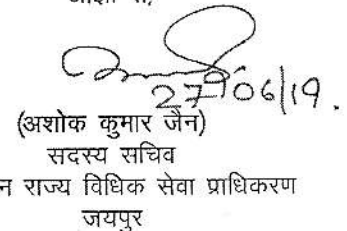 27/06/19.
(अशोक कुमार जैन)
सदस्य सचिव
न राज्य विधिक सेवा प्राधिकरण
जयपुर